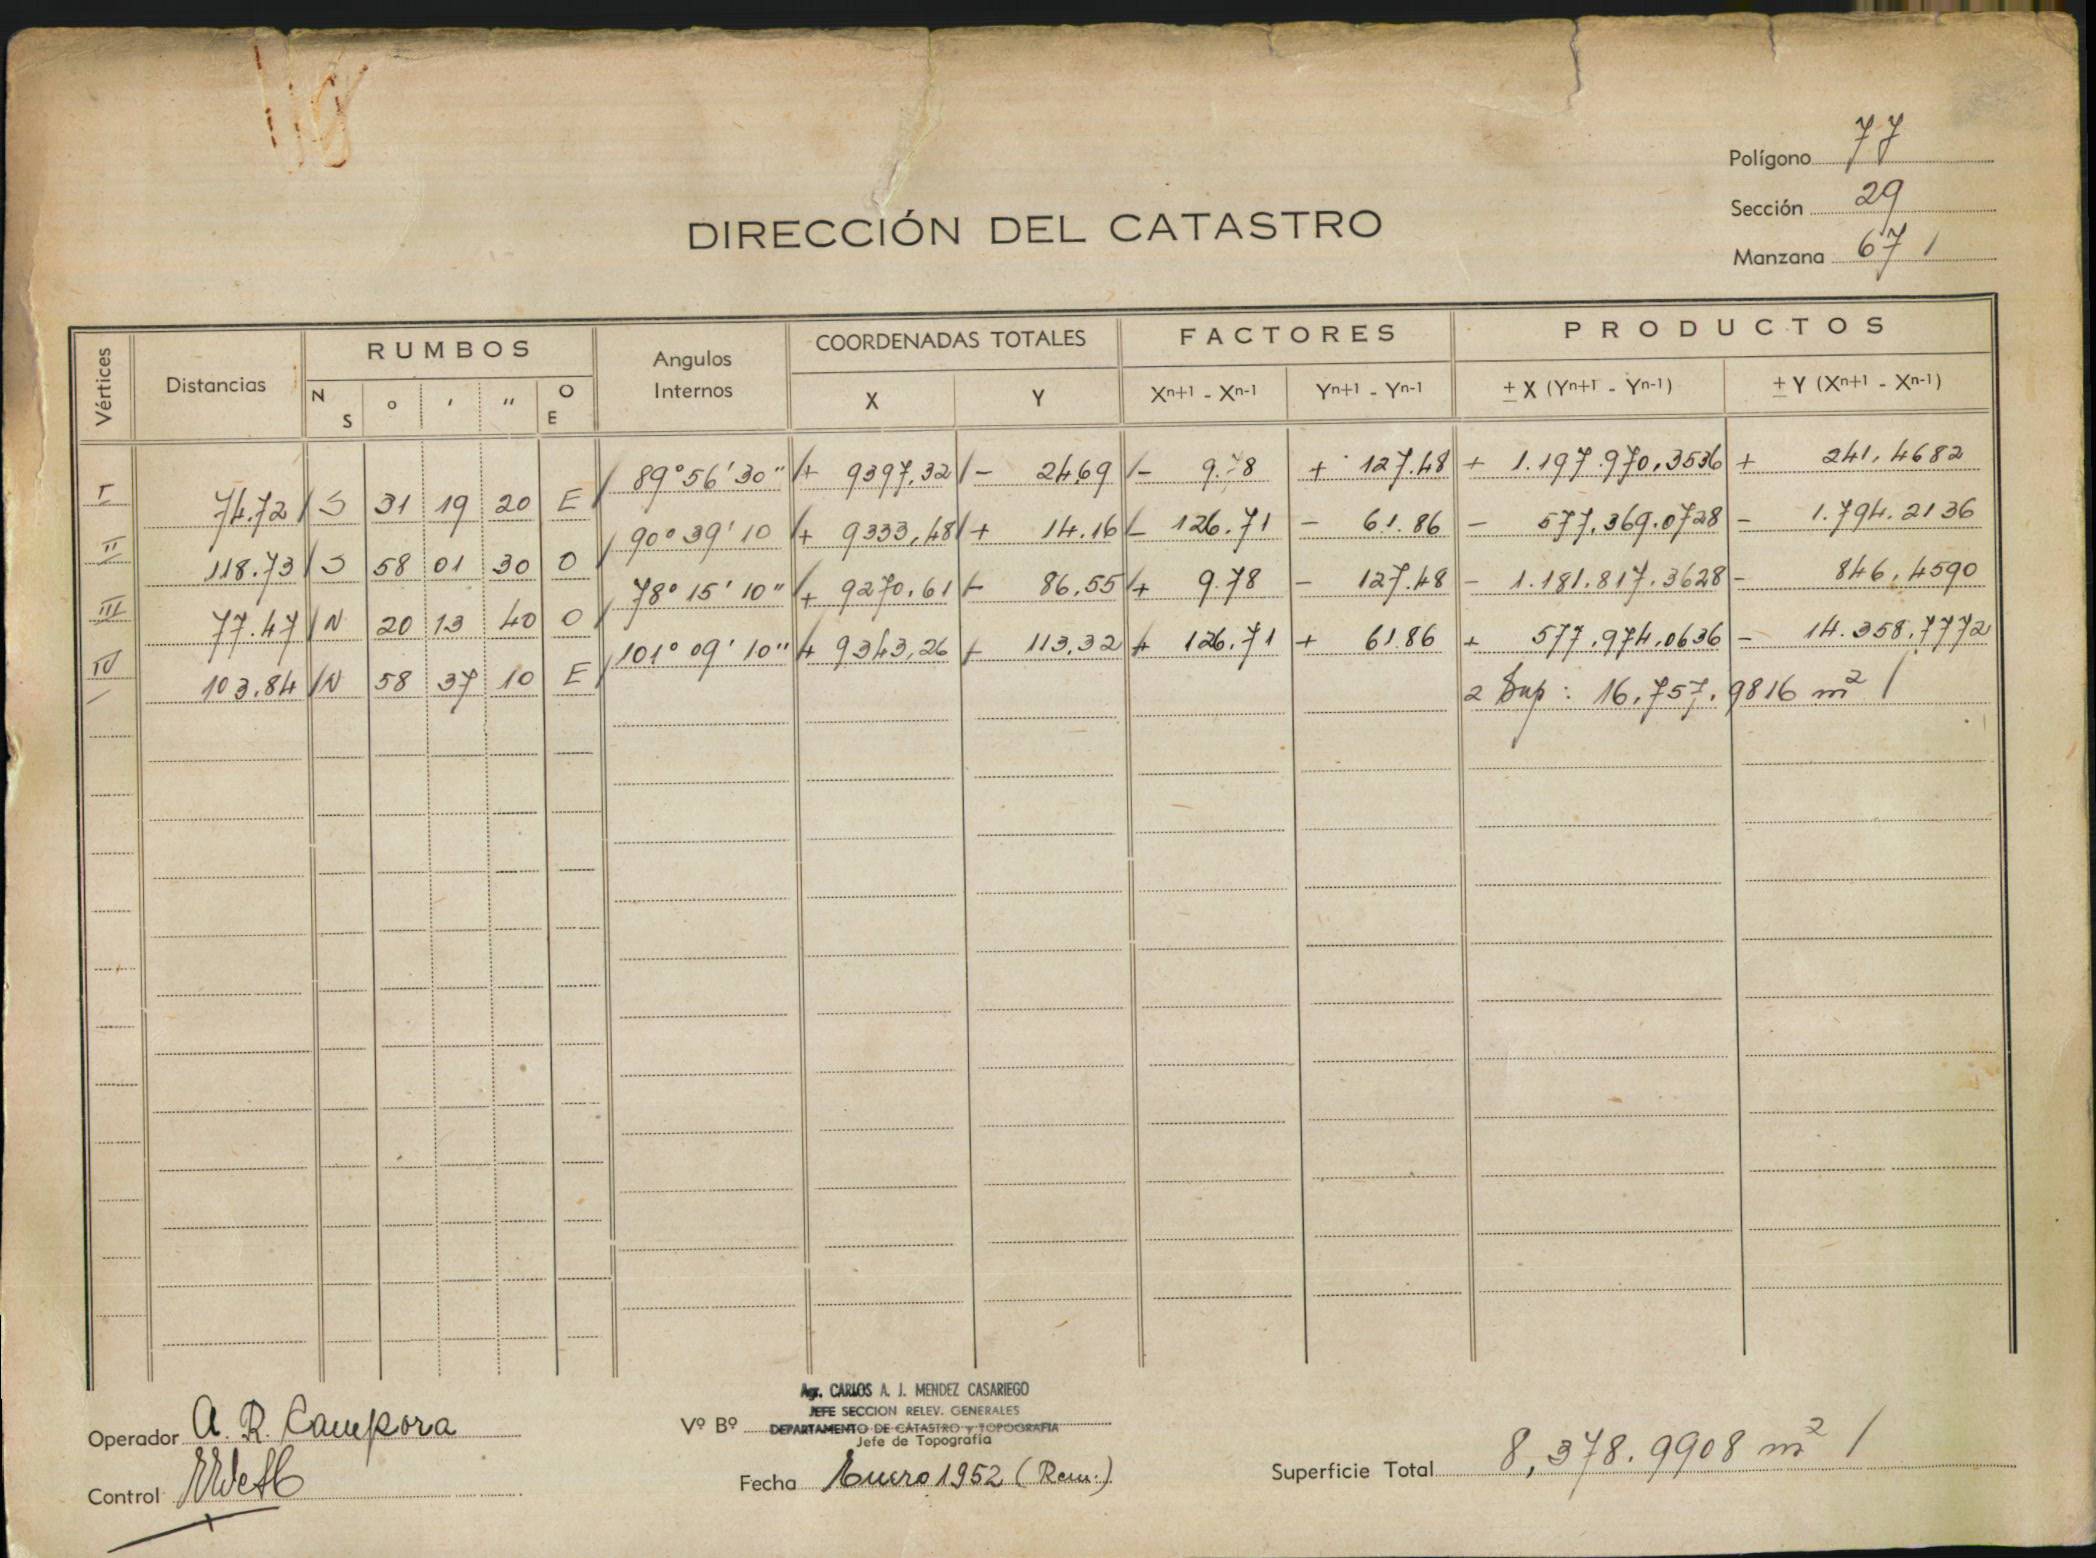 Polígono 77
Sección 29
Manzana 671
DIRECCIÓN DEL CATASTRO
Vértices Distancias RUMBOS Angulos Internos COORDENADAS TOTALES FACTORES PRODUCTOS
N S ° ' " O E X Y Xn+1 - Xn-1 Yn+1 - Yn-1 ± X (Yn+1 - Yn-1) ± Y (Xn+1 - Xn-1)
89° 56' 30" + 9397,32 - 24,69 - 9.78 + 127.48 + 1.197.970,3536 + 241,4682
I 74.72 S 31 19 20 E
90° 39' 10 + 9333,48 + 14.16 - 126.71 - 61.86 - 577.369.0728 - 1.794.2136
II 118.73 S 58 01 30 O
78° 15' 10" + 9270,61 - 86,55 + 9.78 - 127.48 - 1.181.817,3628 - 846,4590
III 77.47 N 20 13 40 O
101° 09' 10" + 9343,26 - 113,32 + 126.71 + 61.86 + 577.974,0636 - 14.358.7772
IV 103.84 N 58 37 10 E
2 Sup: 16.757.9816 m²
Operador A. R. Campora
Vº Bº
Agr. CARLOS A. J. MENDEZ CASARIEGO
JEFE SECCION RELEV. GENERALES
DEPARTAMENTO DE CATASTRO y TOPOGRAFIA
Jefe de Topografía
Control
Fecha Enero 1952 (Rem.)
Superficie Total 8,378.9908 m²